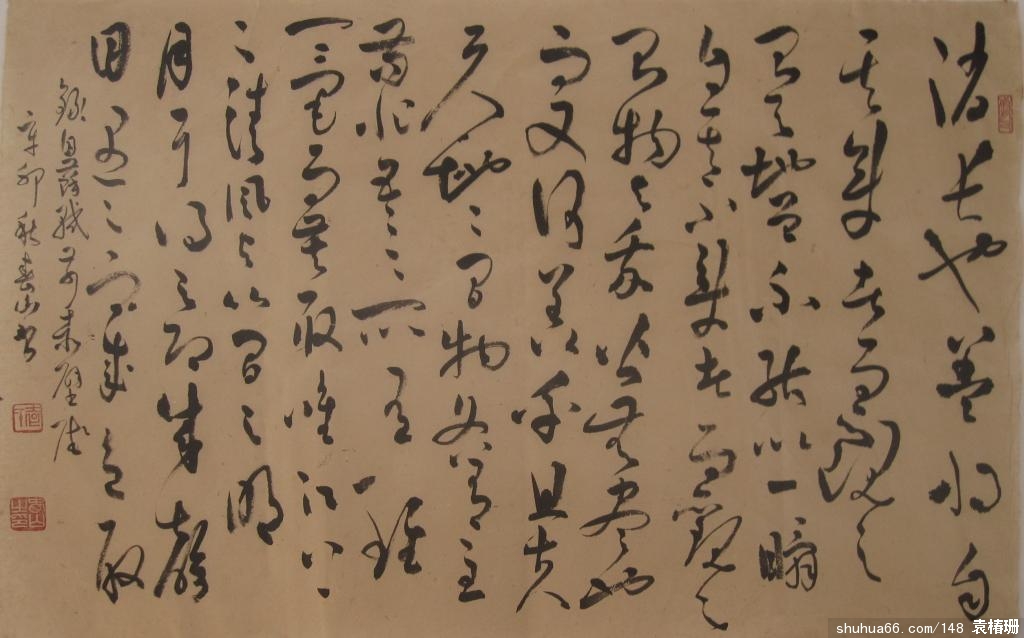 消長也蓋將自
其變者而觀之
則天地曾不能以一瞬
自其不變者而觀之
則物與我皆無盡也
而又何羨乎且夫
天地之間物各有主
苟非吾之所有雖
一毫而莫取唯江上
之清風與山間之明
月耳得之聲
目遇之而成色取
錄自蘇軾前赤壁賦
辛卯秋春山書
shuhua66.com/148 袁椿珊